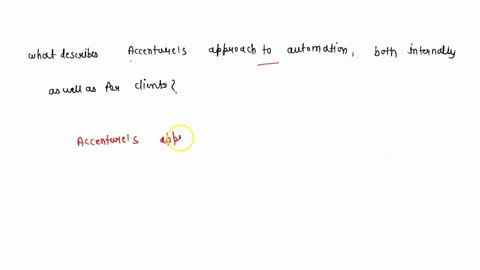 what describes Accenture's approach to automation, both internally
as well as for clients?
Accenture's app